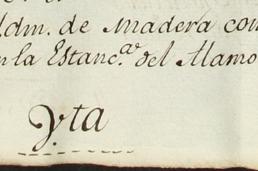 Idm. de Madera con
n la Estanc.ª del Alamo
Yta